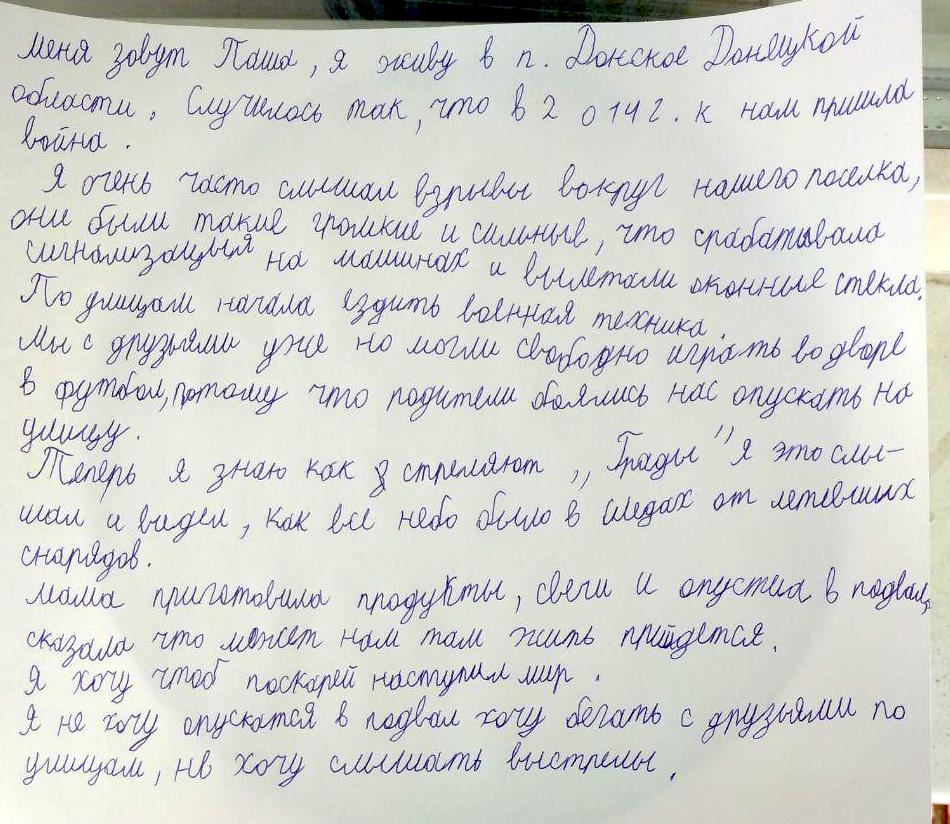 меня зовут Паша, я живу в п. Донское Донецкой
области. Случилось так, что в 2 014 г. к нам пришла
война.
Я очень часто слышал взрывы вокруг нашего поселка,
они были такие громкие и сильные, что срабатывала
сигнализацыя на машинах и вылетали оконные стекла.
По улицам начала ездить военная техника.
Мы с друзьями уже но могли свободно играть во дворе
в футбол, потому что родители боялись нас опускать на
улицу.
Теперь я знаю как стреляют „Грады" я это слы-
шал и видел, как все небо было в следах от летевших
снарядов.
мама приготовила продукты, свечи и опустила в подвал,
сказала что может нам там жить прийдется.
Я хочу чтоб поскарей наступил мир.
Я не хочу опускатся в подвал хочу бегать с друзьями по
улицам, не хочу слышать выстрелы.